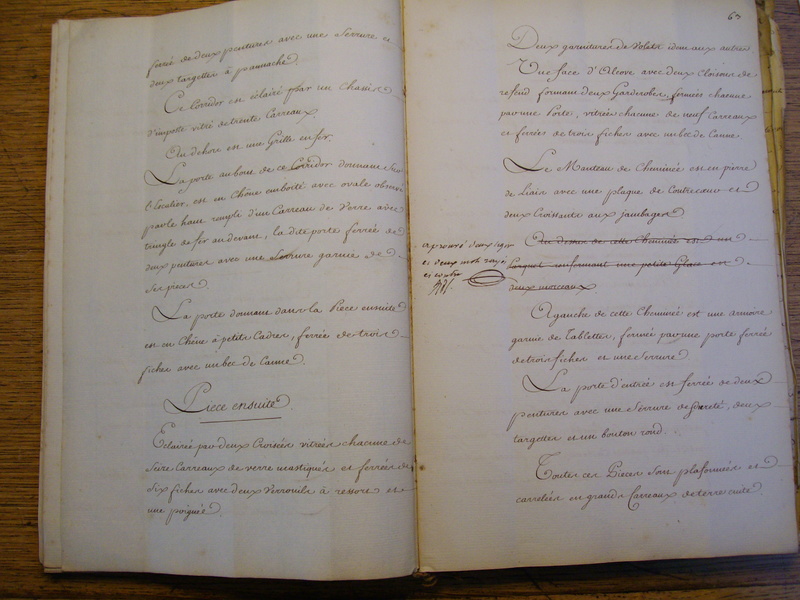 ferrée de deux pentures avec une Serrure et
deux targettes à pannache.
Ce Corridor est éclairé par un Chassis
d'imposte vitré de trente Carreaux
Au dehors est une Grille en fer.
La porte au bout de ce Corridor donnant Sur
l'Escalier, est en Chêne emboité avec ovale
par le haut remply d'un Carreau de Verre avec
tringle de fer au devant, la dite porte ferrée de
deux pentures avec une Serrure garnie de
Ses pieces
La porte donnant dans la Piece ensuite
est en Chêne à petits Cadres, ferrée de trois
fiches avec un bec de Canne.
Piece ensuite
Eclairée par deux Croisées vitrées chacune de
Seize Carreaux de verre mastiqués et ferrées de
Six fiches avec deux Verrouils à ressort et
une poignée
63
Deux garnitures de Volets idem aux autres
Une face d'Alcove avec deux Cloisons de
refend formant deux Garderobes, fermées chacune
par une Porte, vitrées chacune de neuf Carreaux
et ferrées de trois fiches avec un bec de Canne.
Le Manteau de Cheminée est en pierre
de liais avec une plaque de Contrecoeur et
deux Croissants aux jambages
Au dessus de cette Cheminée est un
Parquet renfermant une petite Glace en
deux morceaux
approuvé deux lignes
et deux mots rayés
A gauche de cette Cheminée est une armoire
garnie de Tablettes, fermée par une porte ferrée
de trois fiches et une Serrure
La porte d'entrée est ferrée de deux
pentures avec une Serrure de Sureté, deux
targettes et un bouton rond.
Toutes ces Pieces Sont plafonnées et
carrelées en grands Carreaux de terre cuite